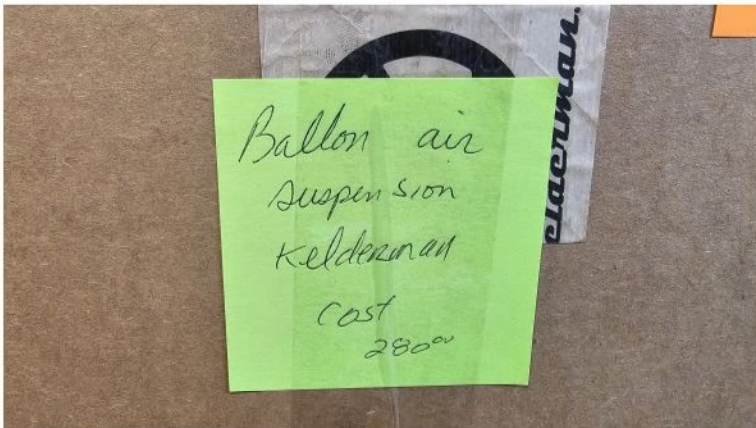 Ballon air
suspension
Kelderman
cost
280⁰⁰
elderman